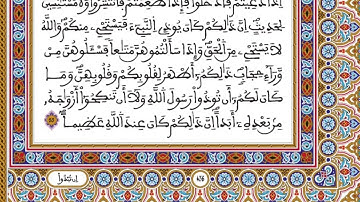 إِذَا دُعِيتُمْ فَادْخُلُوا فَإِذَا طَعِمْتُمْ فَانتَشِرُوا وَلَا مُسْتَنِسِينَ
لِحَدِيثٍ إِنَّ ذَٰلِكُمْ كَانَ يُوذِي النَّبِيَّ فَيَسْتَحْيِ مِنكُمْ وَاللَّهُ
لَا يَسْتَحْيِ مِنَ الْحَقِّ وَإِذَا سَأَلْتُمُوهُنَّ مَتَاعًا فَسْـَٔلُوهُنَّ مِنْ
وَرَآءِ حِجَابٍ ذَٰلِكُمْ أَطْهَرُ لِقُلُوبِكُمْ وَقُلُوبِهِنَّ وَمَا
كَانَ لَكُمْ أَن تُوذُوا رَسُولَ اللَّهِ وَلَا أَن تَنكِحُوا أَزْوَاجَهُ
مِن بَعْدِهِ أَبَدًا إِنَّ ذَٰلِكُمْ كَانَ عِندَ اللَّهِ عَظِيمًا
إن تبدوا